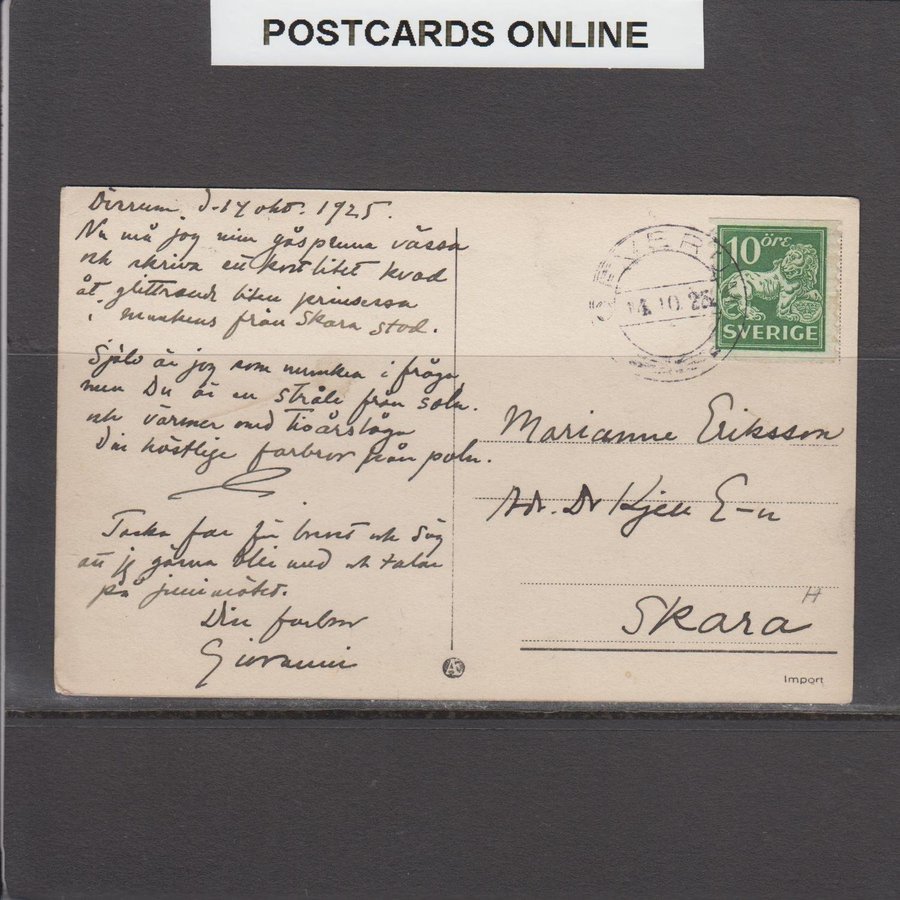 POSTCARDS ONLINE
d. 14 okt. 1925.
Nu må jag min gåspenna vässa
och skriva ett kort litet kvad
åt glittrande liten prinsessa
i munkens från Skara stad.
Själv är jag som munken i fråga,
men Du är en stråle från soln.
och värmer med tioårslåga
Din höstlige farbror från poln.
Tacka far för brevet och säg
att jag gärna blir med och talar
på junimötet.
Din farbror
Giovanni
10 öre
SVERIGE
14.10.25
Marianne Eriksson
Adr. Dr Kjell E-n
Skara
H
Import